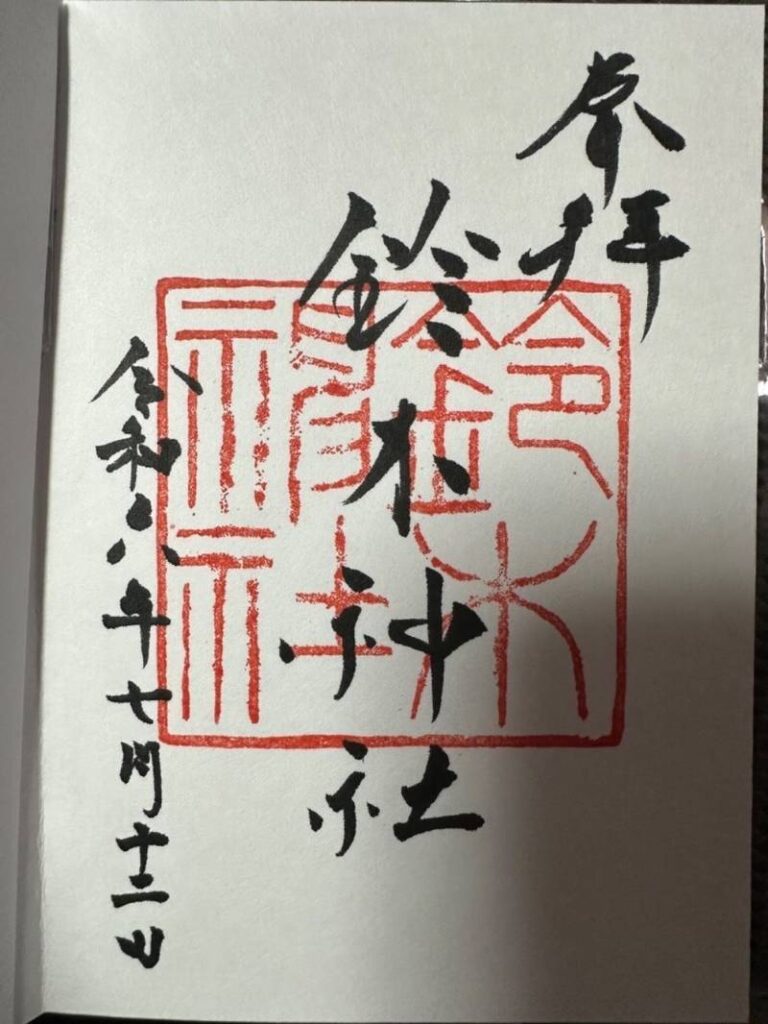 奉拝
鈴木神社
鈴木神社
令和六年七月十二日